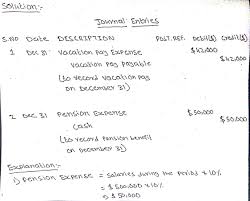 Solution:-
Journal Entries
S.NO Date DESCRIPTION POST.REF. Debit($) Credit($)
1 Dec 31 Vacation Pay Expense $42,000
Vacation Pay Payable $42,000
(to record vacation pay
on December 31)
2 Dec 31 Pension Expense $50,000
Cash $50,000
(to record Pension benefit
on December 31)
Explanation:-
1) Pension Expense = Salaries during the Period x 10%
= $500,000 x 10%
= $50,000